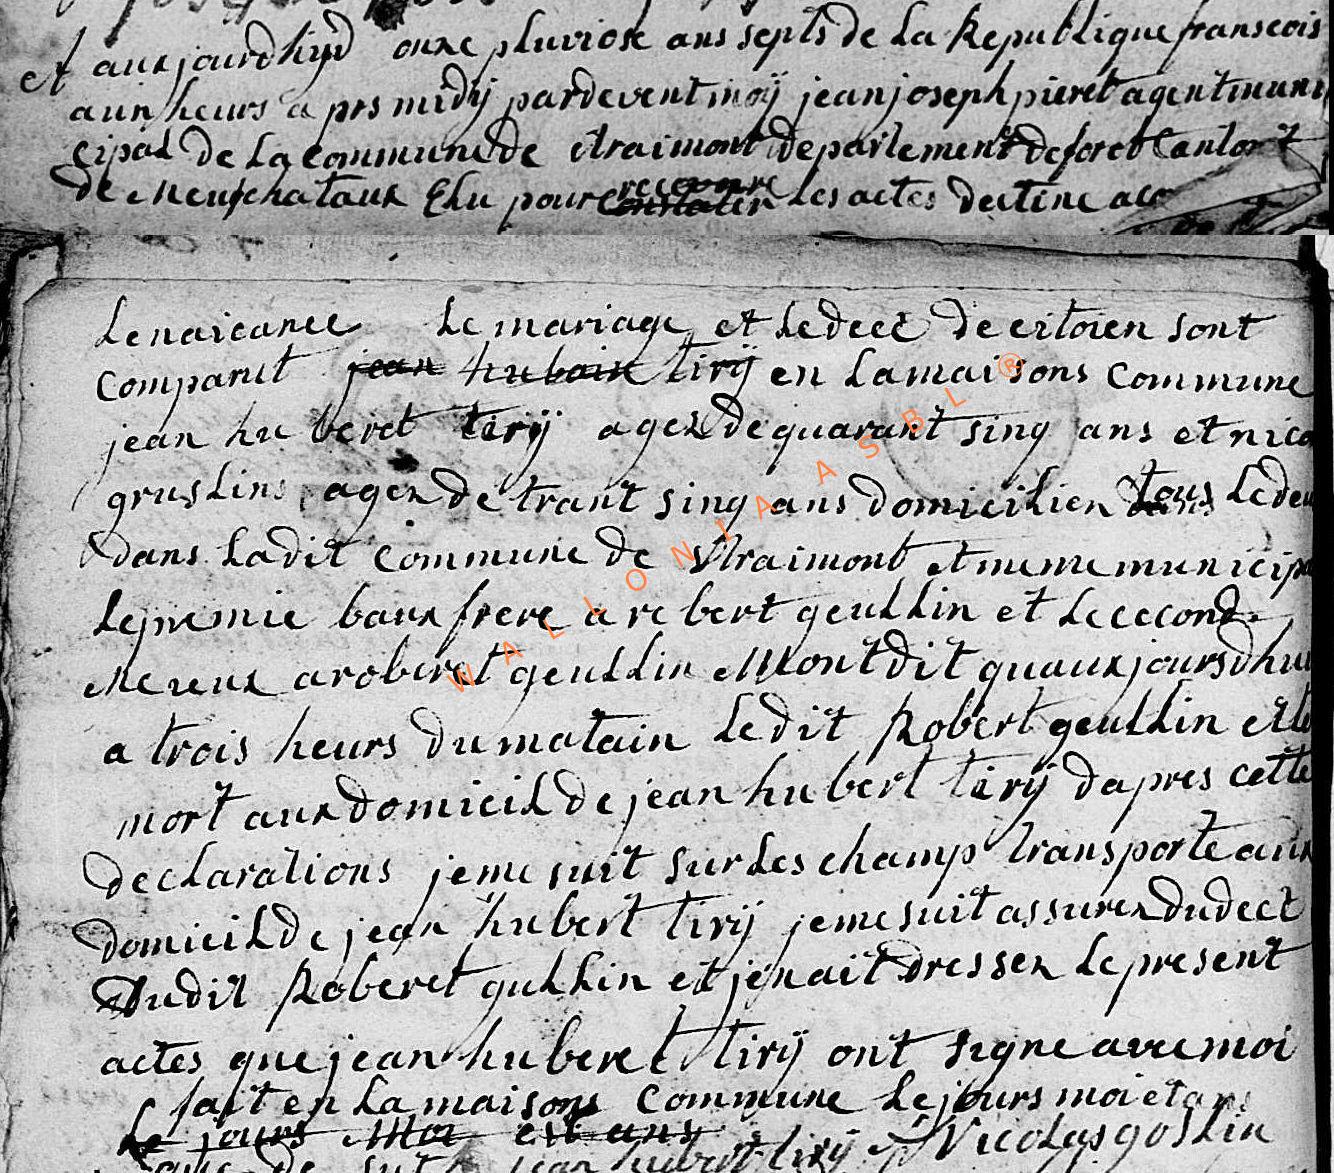 et aux jourdhÿd onze pluviose ans septs de la Republique franseois
a un heurs a prs midÿ pardevent moÿ jean joseph pieret agent muni
cipal de la commune de straimont departement de foret Canton
de Neufchataux Elu pour recevoire les actes dectine a co
Le naicance Le mariage et Le decè de citoien sont
comparut jean hubair tirÿ en La maisons commune
jean huberet tirÿ agez de quarant sinq ans et nico
gruslins agez de trant sinq ans domicilien tous Le deu
dans Ladit commune de straimont et meme municip
Le premie baux frere a rebert geullin et Le cecond
Neveux a roberet geullin Mont dit quaux jours dhui
a trois heurs du matain Le dit Robert geullin est
mort aux domicil de jean hubert tirÿ dapres cette
declarations je me suit sur Les champ transporte aux
domicil de jean hubert tirÿ je me suit assurez du decè
Dudit Roberet gullin et jenait dressez Le present
actes que jean huberet tirÿ ont signe avec moi
fait en La maisons commune Le jours moi et ans
Le jours Moi est ans
jean hubert tirÿ Nicolas goslin
WALLONIA ASBL ®